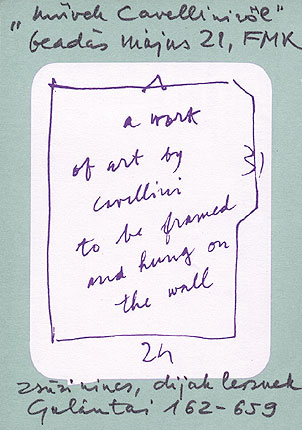 „művek Cavelliniről"
beadás május 21, FMK
a work
of art by
cavellini
to be framed
and hung on
the wall
24
zsűri nincs, díjak lesznek
Galántai 162-659